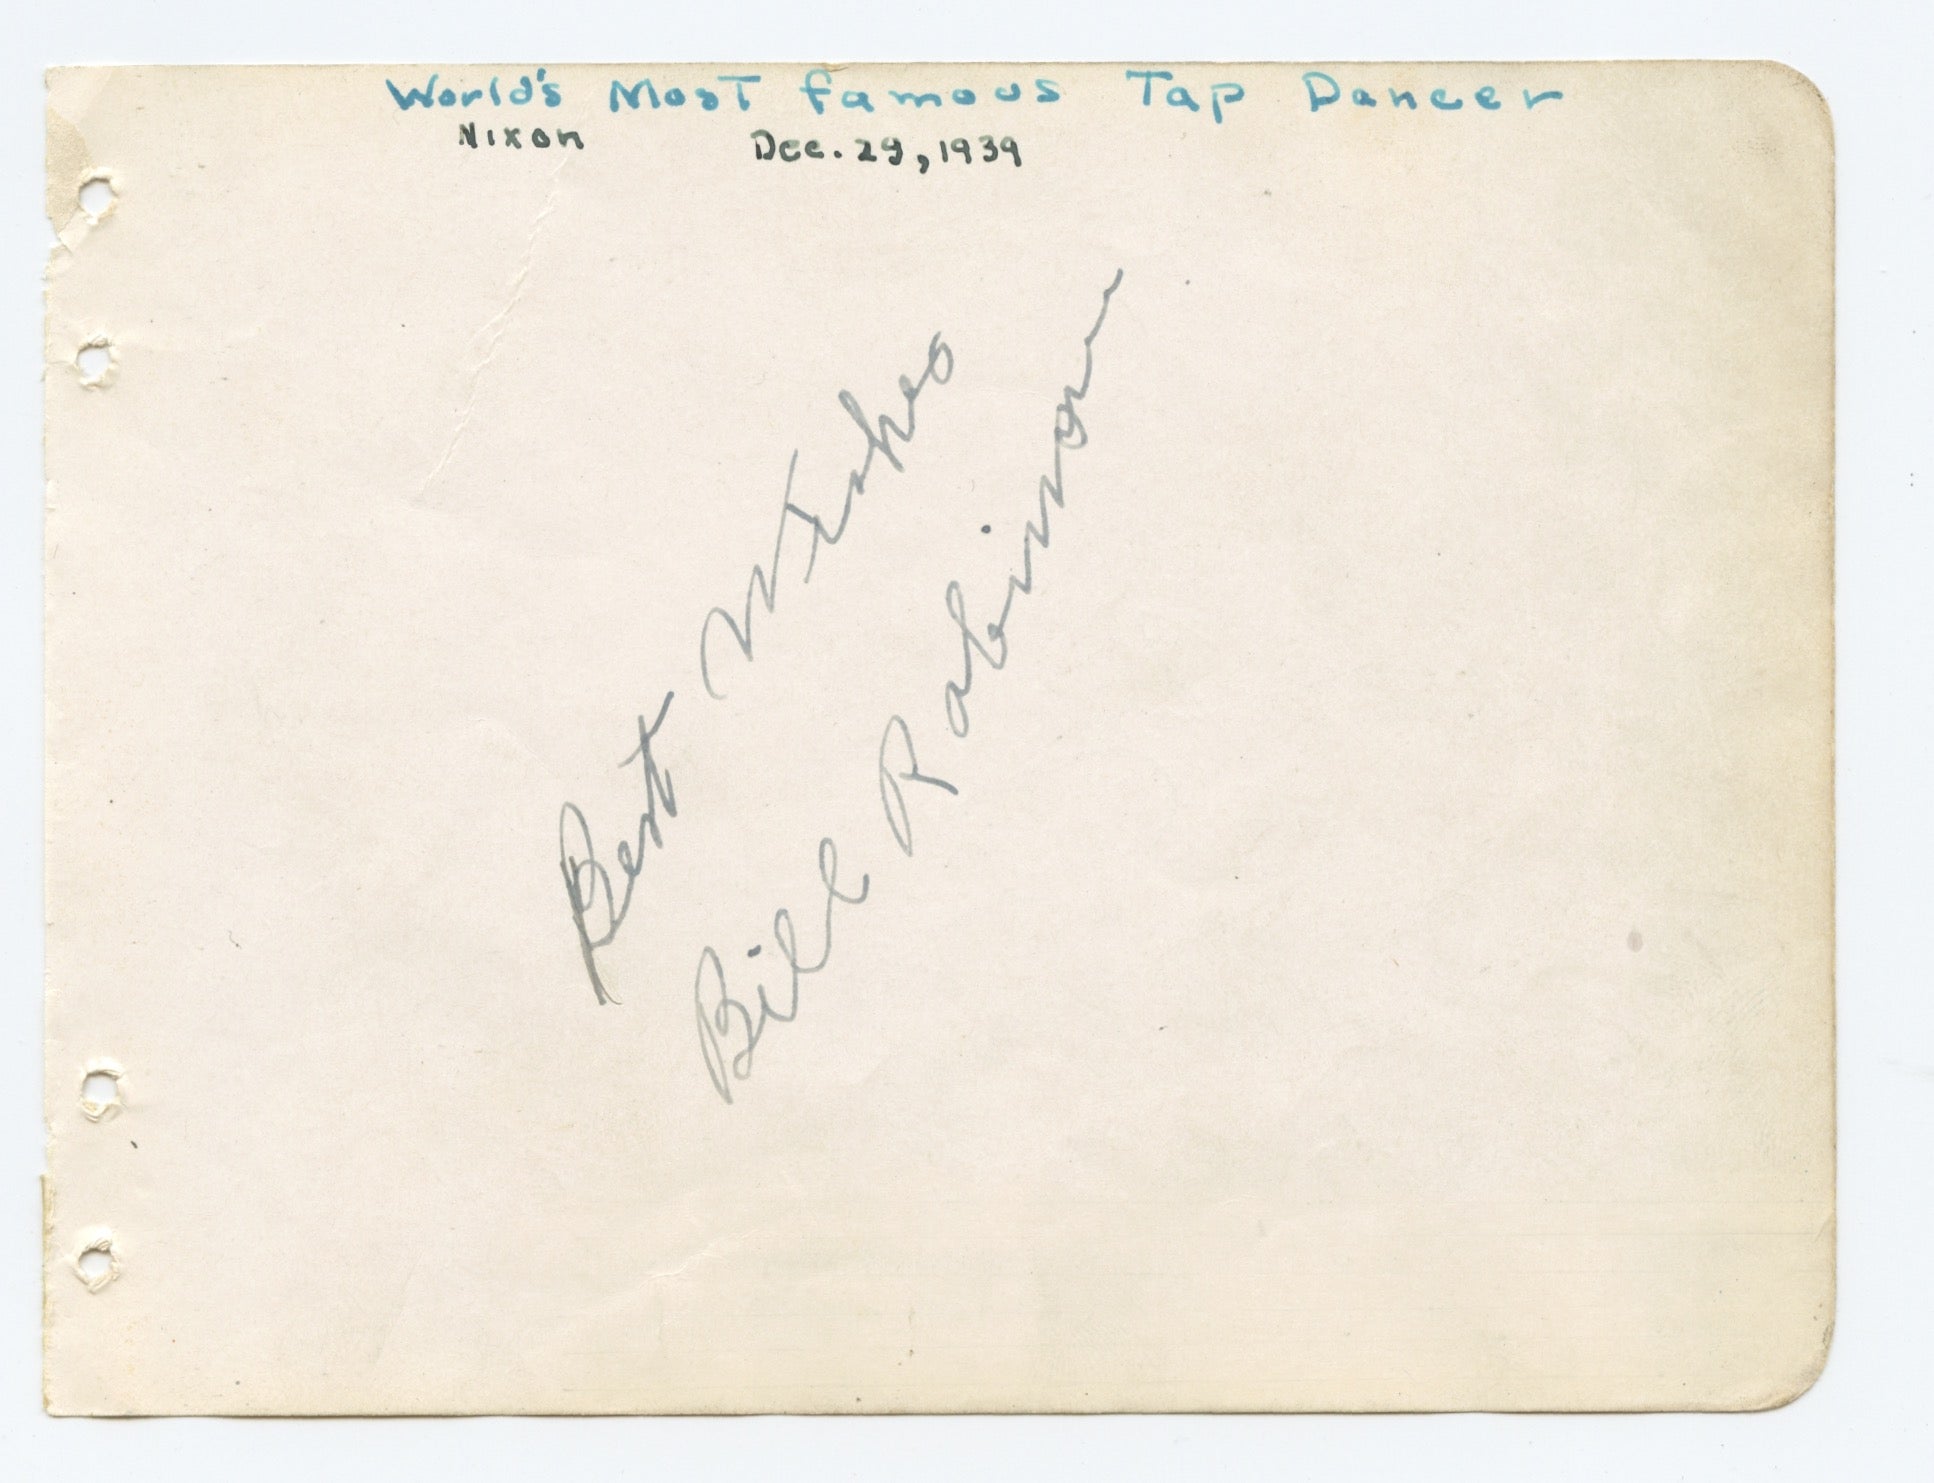 World's Most famous Tap Dancer
Nixon Dec. 29, 1939
Best Wishes
Bill Robinson